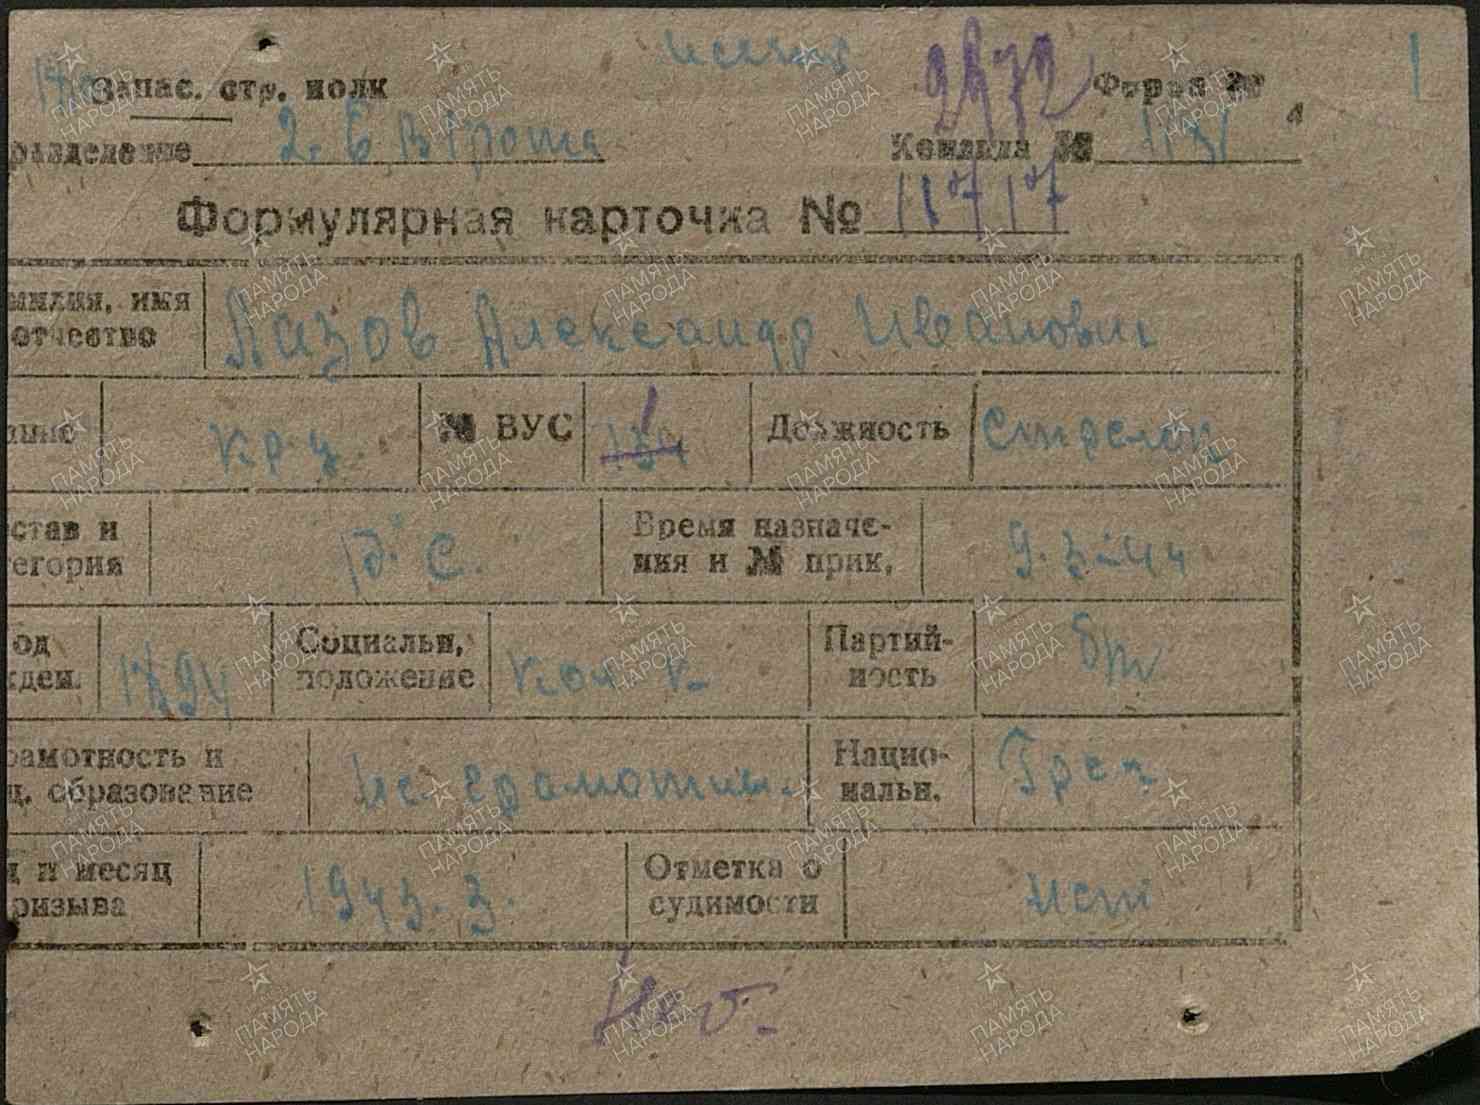 Запас. стр. полк
2872
Форма №
4
разделение
Команда №
Формулярная карточка № 11717
милия, имя отчество Лазов Александр Иванович
крц. № ВУС 134 1 Должность Стрелец
став и егория Время назначения и № прик. 9.3-44
од ждем. 1894 Социальн. положение кол-к- Партийность бп
рамотность и щ. образование Не грамотн. Национальн. Грек
д и месяц ризыва 1943.3. Отметка о судимости нет
ПАМЯТЬ НАРОДА